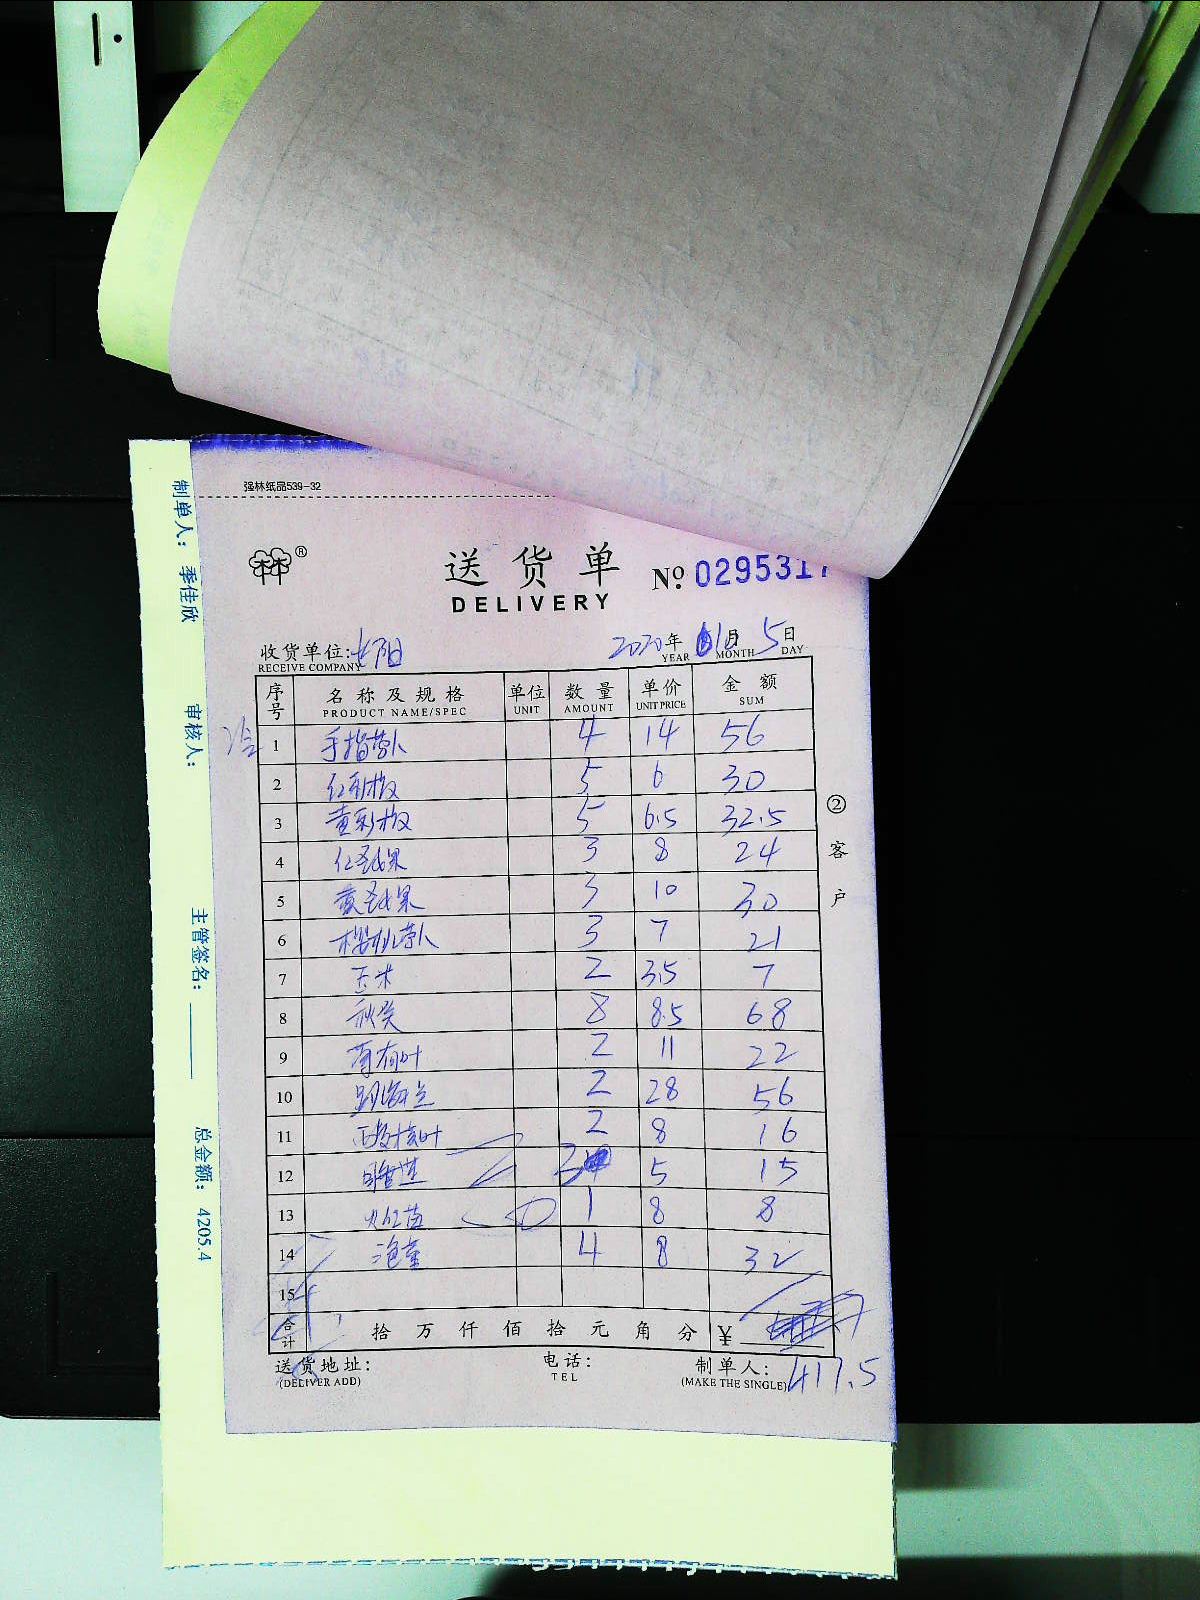 强林纸品539-32
®
送货单 № 0295317
DELIVERY
收货单位: 2020年 11月 5日
RECEIVE COMPANY YEAR MONTH DAY
序号 名称及规格 单位 数量 单价 金额
PRODUCT NAME/SPEC UNIT AMOUNT UNIT PRICE SUM
1 手指萝卜 4 14 56
2 红彩椒 5 6 30
3 黄彩椒 5 6.5 32.5
4 红圣女果 3 8 24
5 黄圣女果 3 10 30
6 樱桃萝卜 3 7 21
7 玉米 2 3.5 7
8 秋葵 8 8.5 68
9 薄荷叶 2 11 22
10 2 28 56
11 2 8 16
12 3 5 15
13 火红苗 1 8 8
14 4 8 32
15
合计 拾 万 仟 佰 拾 元 角 分 ¥
417.5
送货地址: 电话: 制单人:
(DELIVER ADD) TEL (MAKE THE SINGLE)
② 客户
制单人: 季佳欣 审核人: 主管签名: 总金额: 4205.4